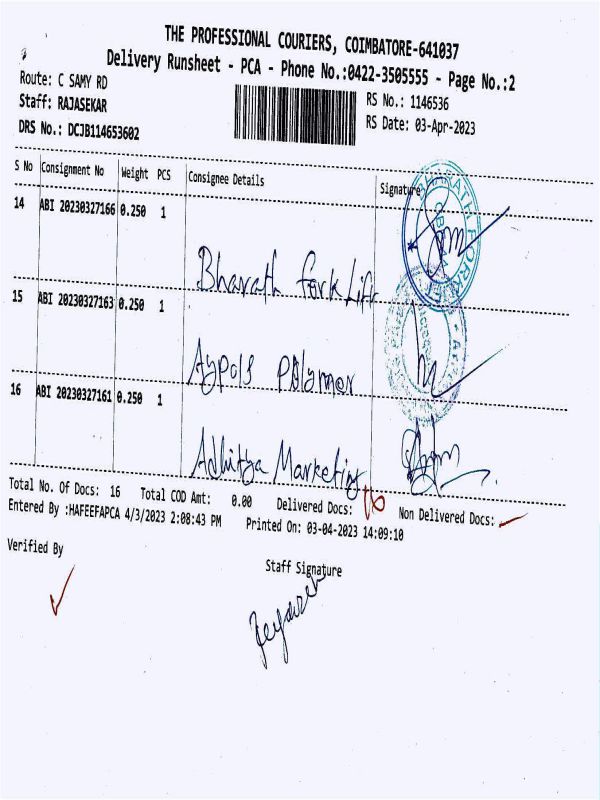 THE PROFESSIONAL COURIERS, COIMBATORE-641037
Delivery Runsheet - PCA - Phone No.:0422-3505555 - Page No.:2
Route: C SAMY RD
RS No.: 1146536
Staff: RAJASEKAR
RS Date: 03-Apr-2023
DRS No.: DCJB114653602
S No Consignment No Weight PCS Consignee Details Signature
14 ABI 20230327166 0.250 1
Bharath Fork Lift
15 ABI 20230327163 0.250 1
Aypols Polymer
16 ABI 20230327161 0.250 1
Adhitya Marketing
Total No. Of Docs: 16 Total COD Amt: 0.00 Delivered Docs: 16 Non Delivered Docs:
Entered By :HAFEEFAPCA 4/3/2023 2:08:43 PM Printed On: 03-04-2023 14:09:10
Verified By
Staff Signature